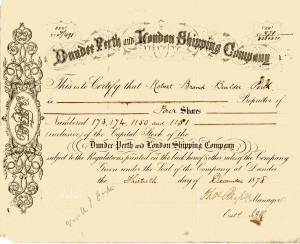 Dundee Perth and London Shipping Company
This is to Certify that Robert Brand Builder Perth
is Proprietor of
Four Shares
Numbered 173, 174, 1180 and 1181
inclusive of the Capital Stock of the
Dundee Perth and London Shipping Company
subject to the Regulations printed on the back hereof & other rules of the Company
Given under the Seal of the Company at Dundee
the Thirtieth day of December 1878
Manager